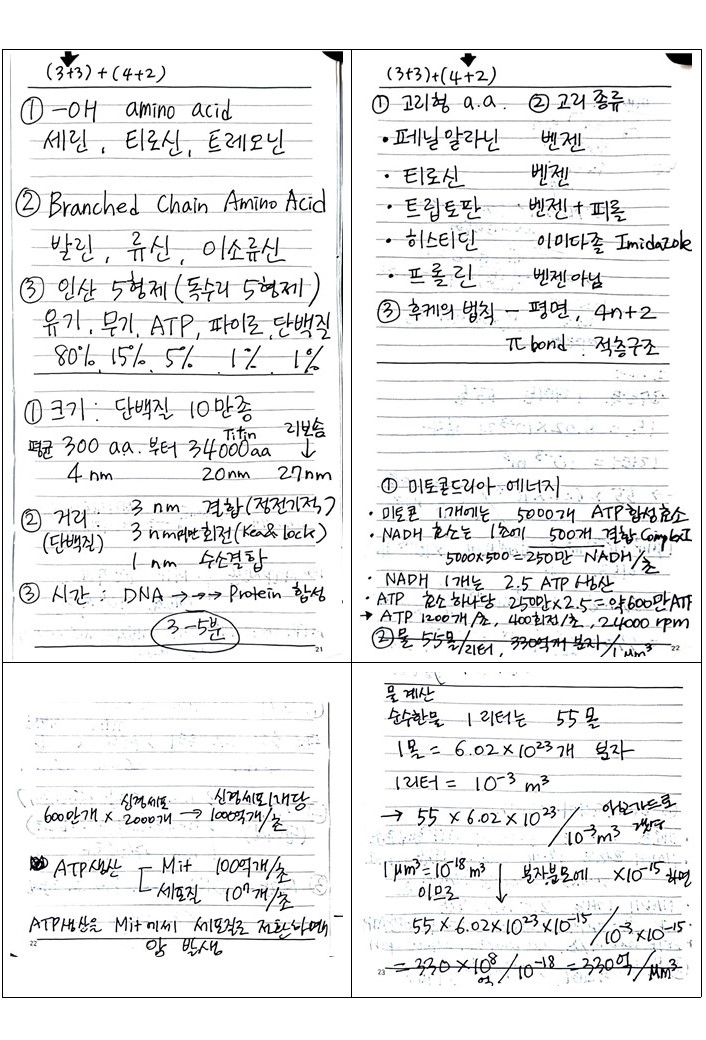 (3+3)+(4+2)
① -OH amino acid
세린, 티로신, 트레오닌
② Branched Chain Amino Acid
발린, 류신, 이소류신
③ 인산 5형제(독수리 5형제)
유기, 무기, ATP, 파이로, 단백질
80%, 15%, 5%, 1%, 1%
① 크기: 단백질 10만종
Titin 리보솜
평균 300 aa. 부터 34000aa ↓
4 nm 20nm 27nm
② 거리: 3 nm 결합(정전기적)
(단백질) 3 nm 회전(Key & lock)
1 nm 수소결합
③ 시간: DNA →→→ Protein 합성
3-5분
21
(3+3)+(4+2)
① 고리형 a.a. ② 고리 종류
• 페닐알라닌 벤젠
• 티로신 벤젠
• 트립토판 벤젠+피롤
• 히스티딘 이미다졸 Imidazole
• 프롤린 벤젠아님
③ 후케의 법칙 - 평면, 4n+2
π bond 적층구조
① 미토콘드리아 에너지
• 미토콘 1개에는 5000개 ATP합성효소
• NADH 효소는 1초에 500개 결합 Complex I
5000×500=250만 NADH/초
• NADH 1개는 2.5 ATP생산
• ATP 효소하나당 250만×2.5=약600만ATP
→ ATP 1200개/초, 400회전/초, 24000 rpm
② 물 55몰/리터, 330억개 분자/1μm³
22
신경세포 신경세포1개당
600만개 × 2000개 → 100억개/초
ATP생산 Mit 100억개/초
세포질 개/초
ATP생산을 Mit에서 세포질로 전환하면
암 발생
22
물 계산
순수한물 1리터는 55몰
1몰 = 6.02×10²³개 분자
1리터 = 10⁻³ m³
→ 55 × 6.02×10²³/10⁻³m³ 아보가드로
1μm³=10⁻¹⁸m³ 분자분모에 ×10⁻¹⁵ 하면
이므로 ↓
55×6.02×10²³×10⁻¹⁵/10⁻³×10⁻¹⁵
=330×10⁸/10⁻¹⁸ =330억/μm³
억
23